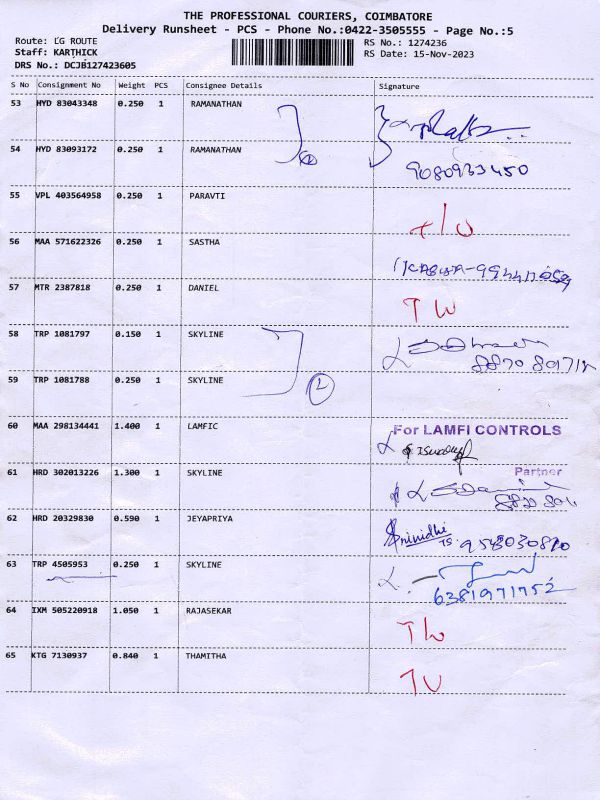 THE PROFESSIONAL COURIERS, COIMBATORE
Delivery Runsheet - PCS - Phone No.:0422-3505555 - Page No.:5
Route: LG ROUTE
RS No.: 1274236
Staff: KARTHICK
RS Date: 15-Nov-2023
DRS No.: DCJB127423605
S No Consignment No Weight PCS Consignee Details Signature
53 HYD 83043348 0.250 1 RAMANATHAN
54 HYD 83093172 0.250 1 RAMANATHAN
9080933450
55 VPL 403564958 0.250 1 PARAVTI
56 MAA 571622326 0.250 1 SASTHA
57 MTR 2387818 0.250 1 DANIEL
58 TRP 1081797 0.150 1 SKYLINE
59 TRP 1081788 0.250 1 SKYLINE
60 MAA 298134441 1.400 1 LAMFIC
For LAMFI CONTROLS
Partner
61 HRD 302013226 1.300 1 SKYLINE
62 HRD 20329830 0.590 1 JEYAPRIYA
Srinidhi
63 TRP 4505953 0.250 1 SKYLINE
6381971752
64 IXM 505220918 1.050 1 RAJASEKAR
65 KTG 7130937 0.840 1 THAMITHA